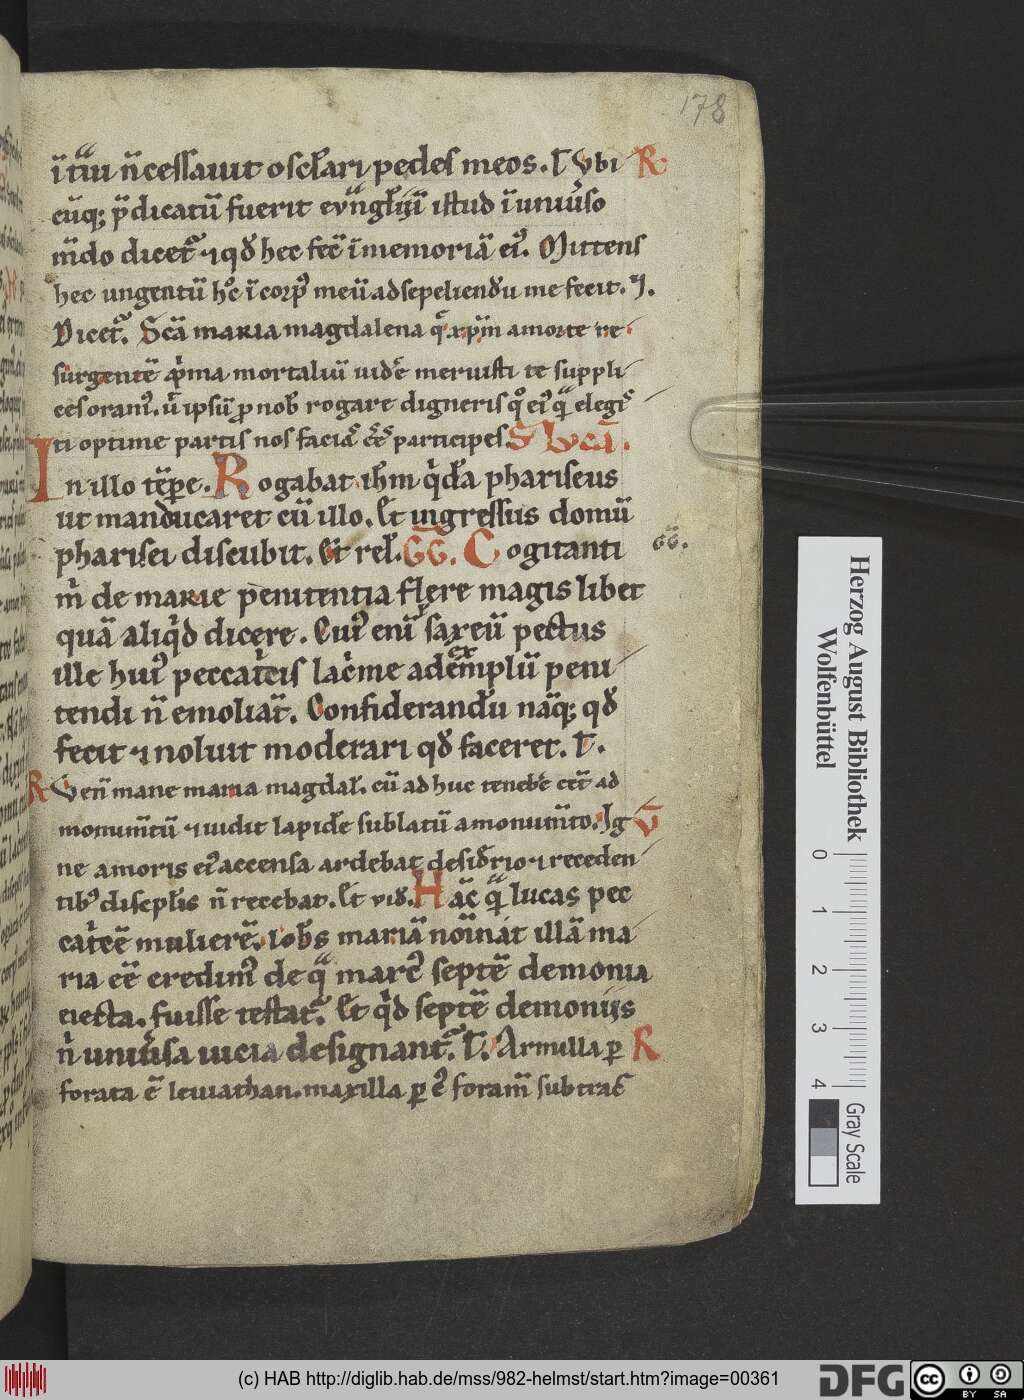 178
ītu̅u n̄cessauit oscl̄ari pedes meos. T Vbi R
cūq; p̄dicatū fuerit evnglīu̅ istud ī uniuso
m̄do dicet᷑ ⁊ qđ hec fec̄ ī memoriā ei᷒. Mittens
hec ungentū hͦc ī corp᷒ meū ad sepeliendū me fecit.
Dicet᷑. Sc̄a maria magdalena q̄ xp̄m amorte re
surgentē p̄ma mortaliū uidē meruisti te suppli
ces oram᷒. ut̄ ipsū ꝓ nob̄ rogare digneris qͦ ei᷒ q̄ elegis
ti optime partis nos faciā c̄c̄ participes. S Lucā.
In illo tēpe. Rogabat ihm q̇dā phariseus
ut manducaret cū illo. Et ingressus domū
pharisei discubit. Et rel. GG. Cogitanti GG.
m̄ de marie penitentia flere magis libet
quā aliq̇d dicere. Cui᷒ enī saxeū pectus
ille hui᷒ peccat̄cis lac̄me ad exēmplū peni
tendi n̄ emoliāt. Considerandū nāq; qđ
fecit ⁊ noluit moderari qđ faceret. T.
R Venī mane maria magdal̄. cū ad huc tenebre eēt ad
monum̄tū ⁊ uidit lapidē sublatū a monum̄to. Ig V
ne amoris ei᷒ accensa ardebat desid̄rio ⁊ receden
tib᷒ discipl̄is n̄ recebat. Et vid̄. Hāc q̄ lucas pec
cat̄cē mulierē. Ioh̄s mariā noīnat illā ma
ria eē credim᷒ de q̄ marc᷒ septē demonia
eiecta. fuisse testat᷑. Et q̇d septē demoniis
n̄ uniūsa uicia designant᷑. T. Armilla ꝑ R
forata ē leuiathan. maxilla ꝑ ei᷒ foram̄ subtrac̄
Herzog August Bibliothek
Wolfenbüttel
0 1 2 3 4
Gray Scale
(c) HAB http://diglib.hab.de/mss/982-helmst/start.htm?image=00361
DFG
cc
BY SA